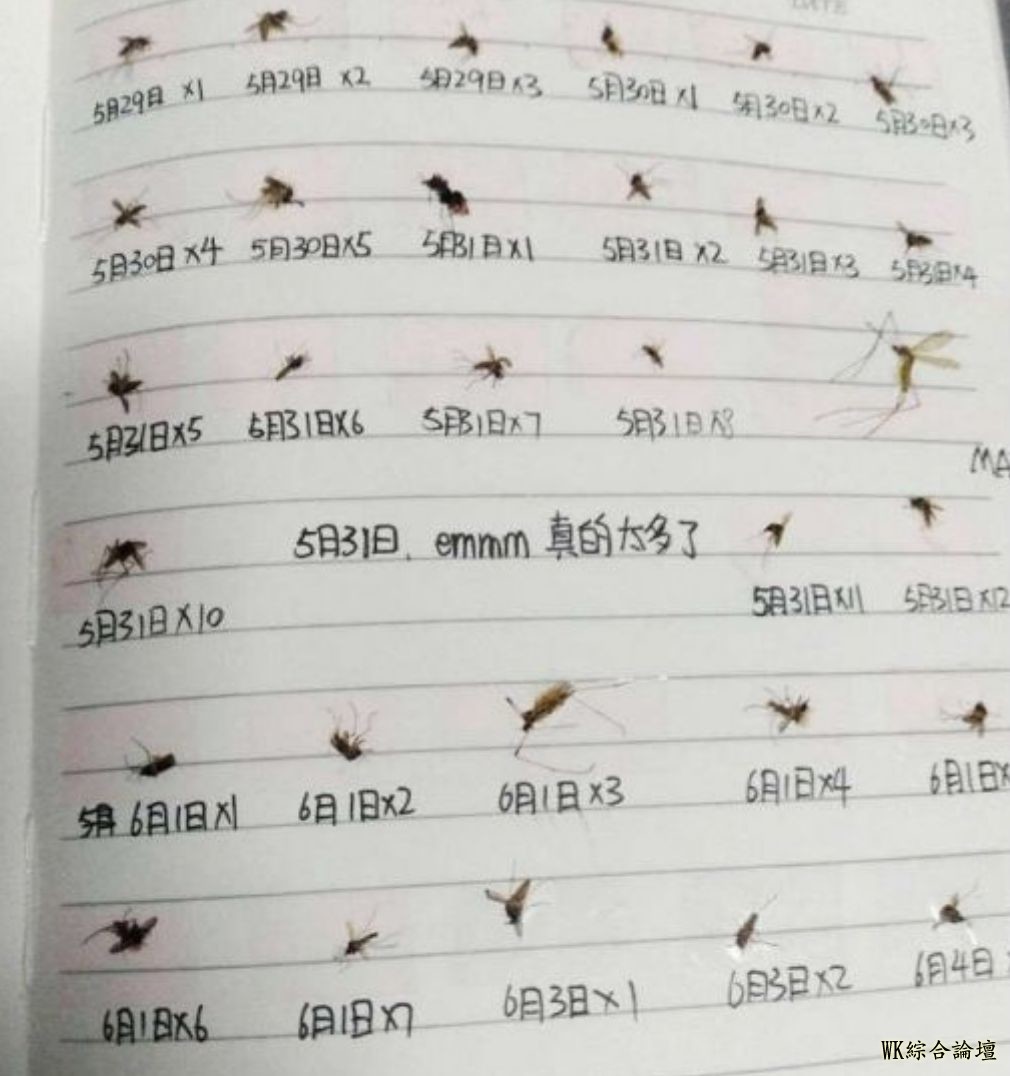 DATE
5月29日 x1 5月29日 x2 5月29日x3 5月30日x1 5月30日x2 5月30日x3
5月30日x4 5月30日x5 5月31日x1 5月31日x2 5月31日x3 5月31日x4
5月31日x5 5月31日x6 5月31日x7 5月31日x8 MA
5月31日, emmm 真的太多了
5月31日x10 5月31日x11 5月31日x12
6月1日x1 6月1日x2 6月1日x3 6月1日x4 6月1日x
6月1日x6 6月1日x7 6月3日x1 6月3日x2 6月4日
WK綜合論壇